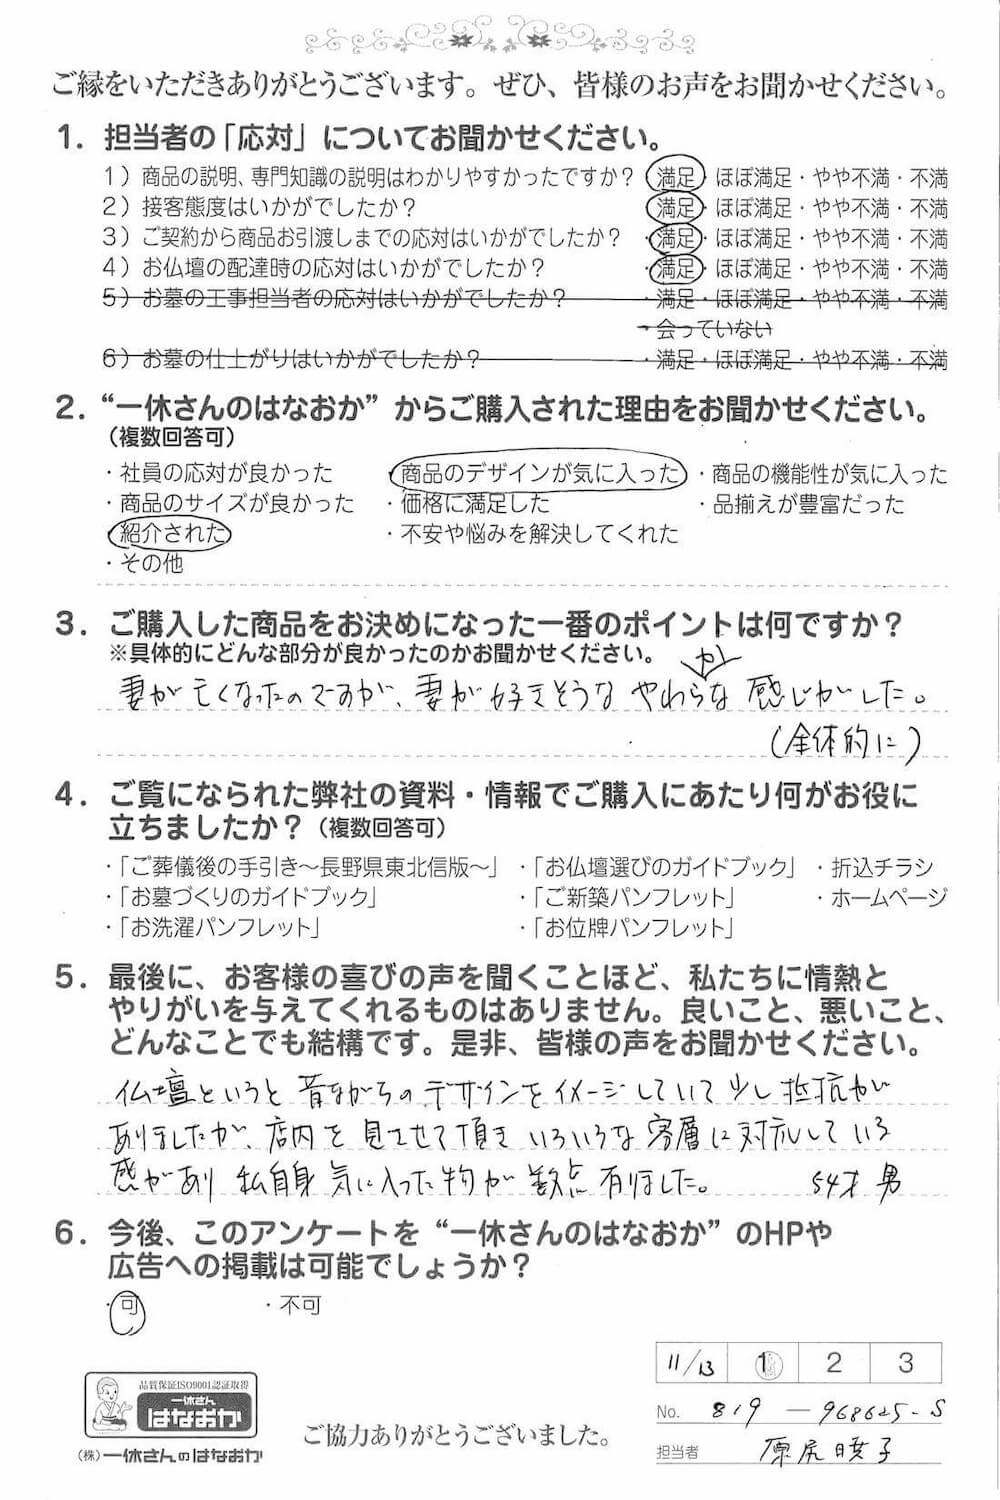 ご縁をいただきありがとうございます。ぜひ、皆様のお声をお聞かせください。
1. 担当者の「応対」についてお聞かせください。
1）商品の説明、専門知識の説明はわかりやすかったですか？ ・満足・ほぼ満足・やや不満・不満
2）接客態度はいかがでしたか？ ・満足・ほぼ満足・やや不満・不満
3）ご契約から商品お引渡しまでの応対はいかがでしたか？ ・満足・ほぼ満足・やや不満・不満
4）お仏壇の配達時の応対はいかがでしたか？ ・満足・ほぼ満足・やや不満・不満
5）お墓の工事担当者の応対はいかがでしたか？ ・満足・ほぼ満足・やや不満・不満
・会っていない
6）お墓の仕上がりはいかがでしたか？ ・満足・ほぼ満足・やや不満・不満
2. “一休さんのはなおか”からご購入された理由をお聞かせください。
（複数回答可）
・社員の応対が良かった ・商品のデザインが気に入った ・商品の機能性が気に入った
・商品のサイズが良かった ・価格に満足した ・品揃えが豊富だった
・紹介された ・不安や悩みを解決してくれた
・その他
3. ご購入した商品をお決めになった一番のポイントは何ですか？
※具体的にどんな部分が良かったのかお聞かせください。
妻が亡くなったのですが、妻が好きそうなやわらかな感じがした。
（全体的に）
4. ご覧になられた弊社の資料・情報でご購入にあたり何がお役に
立ちましたか？（複数回答可）
・「ご葬儀後の手引き～長野県東北信版～」 ・「お仏壇選びのガイドブック」 ・折込チラシ
・「お墓づくりのガイドブック」 ・「ご新築パンフレット」 ・ホームページ
・「お洗濯パンフレット」 ・「お位牌パンフレット」
5. 最後に、お客様の喜びの声を聞くことほど、私たちに情熱と
やりがいを与えてくれるものはありません。良いこと、悪いこと、
どんなことでも結構です。是非、皆様の声をお聞かせください。
仏壇というと昔ながらのデザインをイメージしていて少し抵抗が
ありましたが、店内を見させて頂きいろいろな客層に対応している
感があり私自身気に入った物が数点有りました。 54才 男
6. 今後、このアンケートを“一休さんのはなおか”のHPや
広告への掲載は可能でしょうか？
・可 ・不可
11/13 1 2 3
No. 819－968625-S
担当者 原尻暁子
品質保証ISO9001認証取得
一休さん
はなおか
（株）一休さんのはなおか
ご協力ありがとうございました。